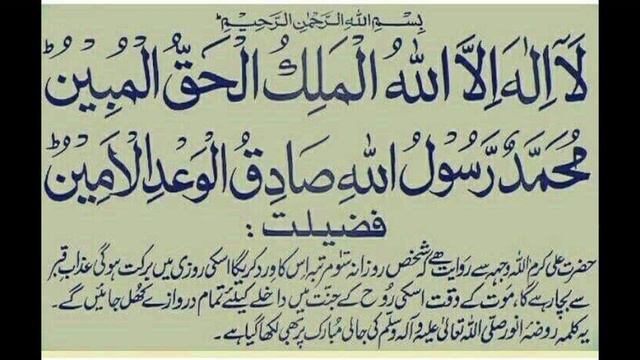 بِسْمِ اللهِ الرَّحْمٰنِ الرَّحِيْمِ
لَآ اِلٰهَ اِلَّا اللهُ الْمَلِكُ الْحَقُّ الْمُبِيْن
مُحَمَّدٌ رَّسُوْلُ اللهِ صَادِقُ الْوَعْدِ الْاَمِيْن
فضیلت :
حضرت علی کرم اللہ وجہہ سے روایت ھے کہ شخص روزانہ سَو مرتبہ اس کا وِرد کریگا اسکی روزی میں برکت ہوگی عذاب قبر
سے بچا رہے گا، موت کے وقت اسکی رُوح کے جنّت میں داخلے کیلئے تمام دروازے کھل جائیں گے۔
یہ کلمہ روضۂ انور صلی اللہ تعالیٰ علیہ وآلہ وسلم کی جالی مُبارک پر بھی لکھا گیا ہے۔